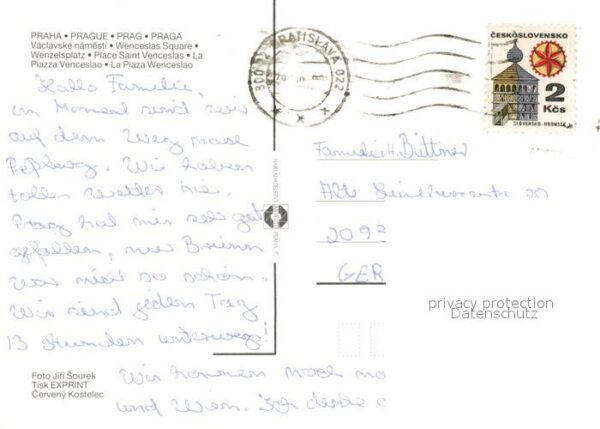 PRAHA • PRAGUE • PRAG • PRAGA
Václavské náměstí • Wenceslas Square •
Wenzelsplatz • Place Saint Venceslas • La
Piazza Venceslao • La Plaza Wenceslao
BRATISLAVA 022
ČESKOSLOVENSKO
2
Kčs
SLOVENSKO-HRONSEK
Hallo Familie,
im Moment sind wir
auf dem Weg nach
Wir haben
tolles Wetter hie.
Prag hat mir seh gut
gefallen, nur Brünn
war nicht so schön.
Wir sind jeden Tag
13 Stunden unterwegs!
Wir kommen noch na
und Wien. Ich denke
Familie H. Büttner
Alte
2092
GER
PRAHA
privacy protection
Datenschutz
Foto Jiří Šourek
Tisk EXPRINT
Červený Kostelec